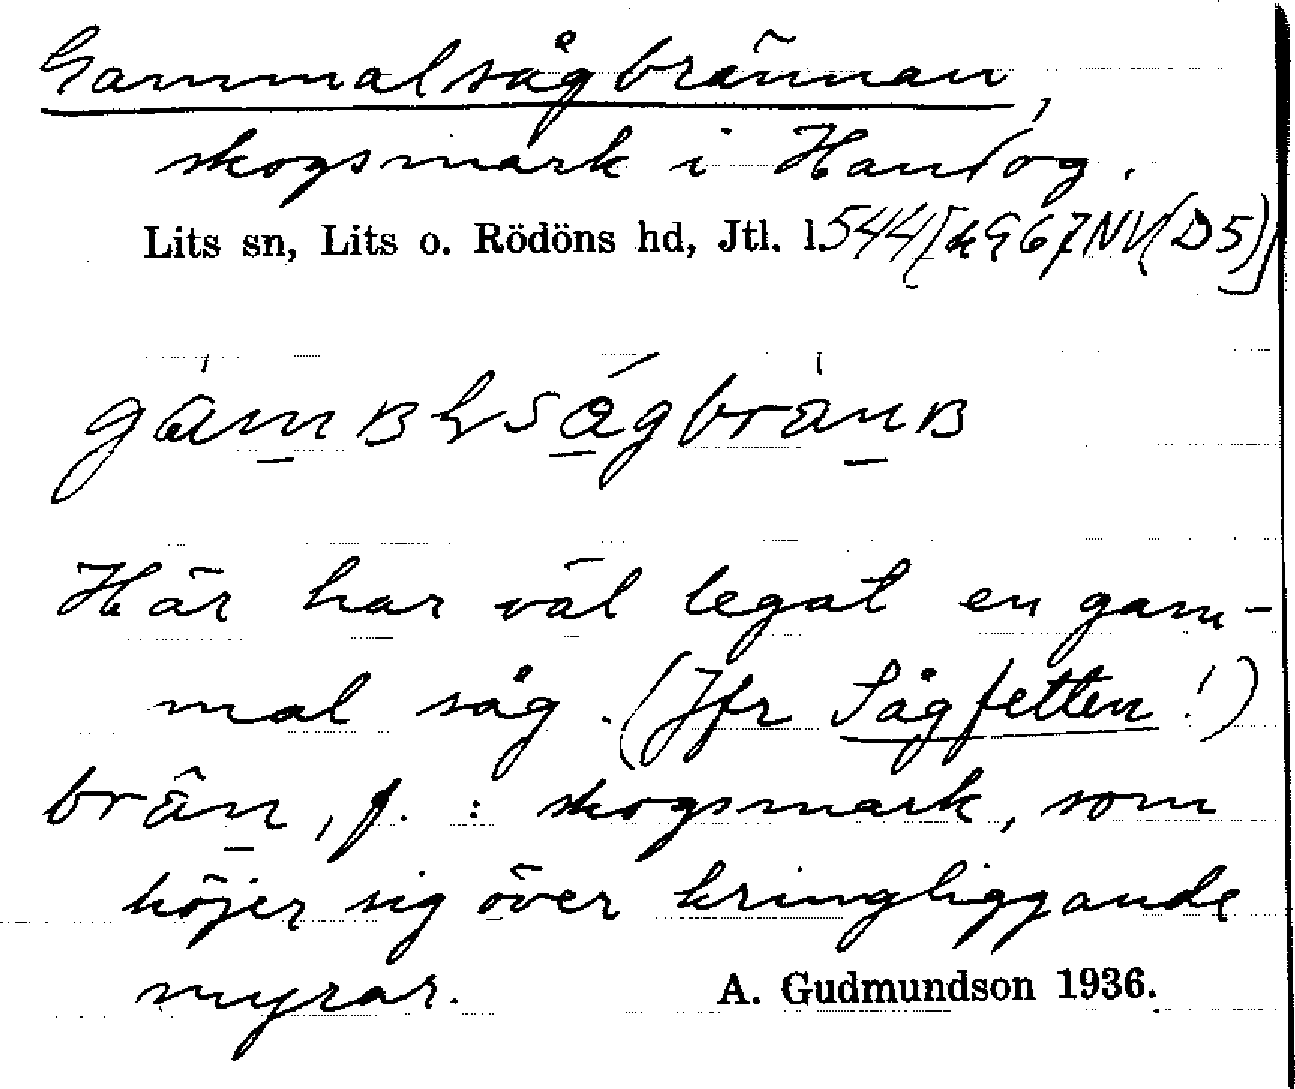 Gammalsågbrännan,
skogsmark i Handog.
Lits sn, Lits o. Rödöns hd, Jtl. l. 544 [h 967 NV (D5)]
Här har väl legat en gam-
mal såg. (Jfr Sågfetten!)
brän, f. : skogsmark, som
höjer sig över kringliggande
myrar. A. Gudmundson 1936.